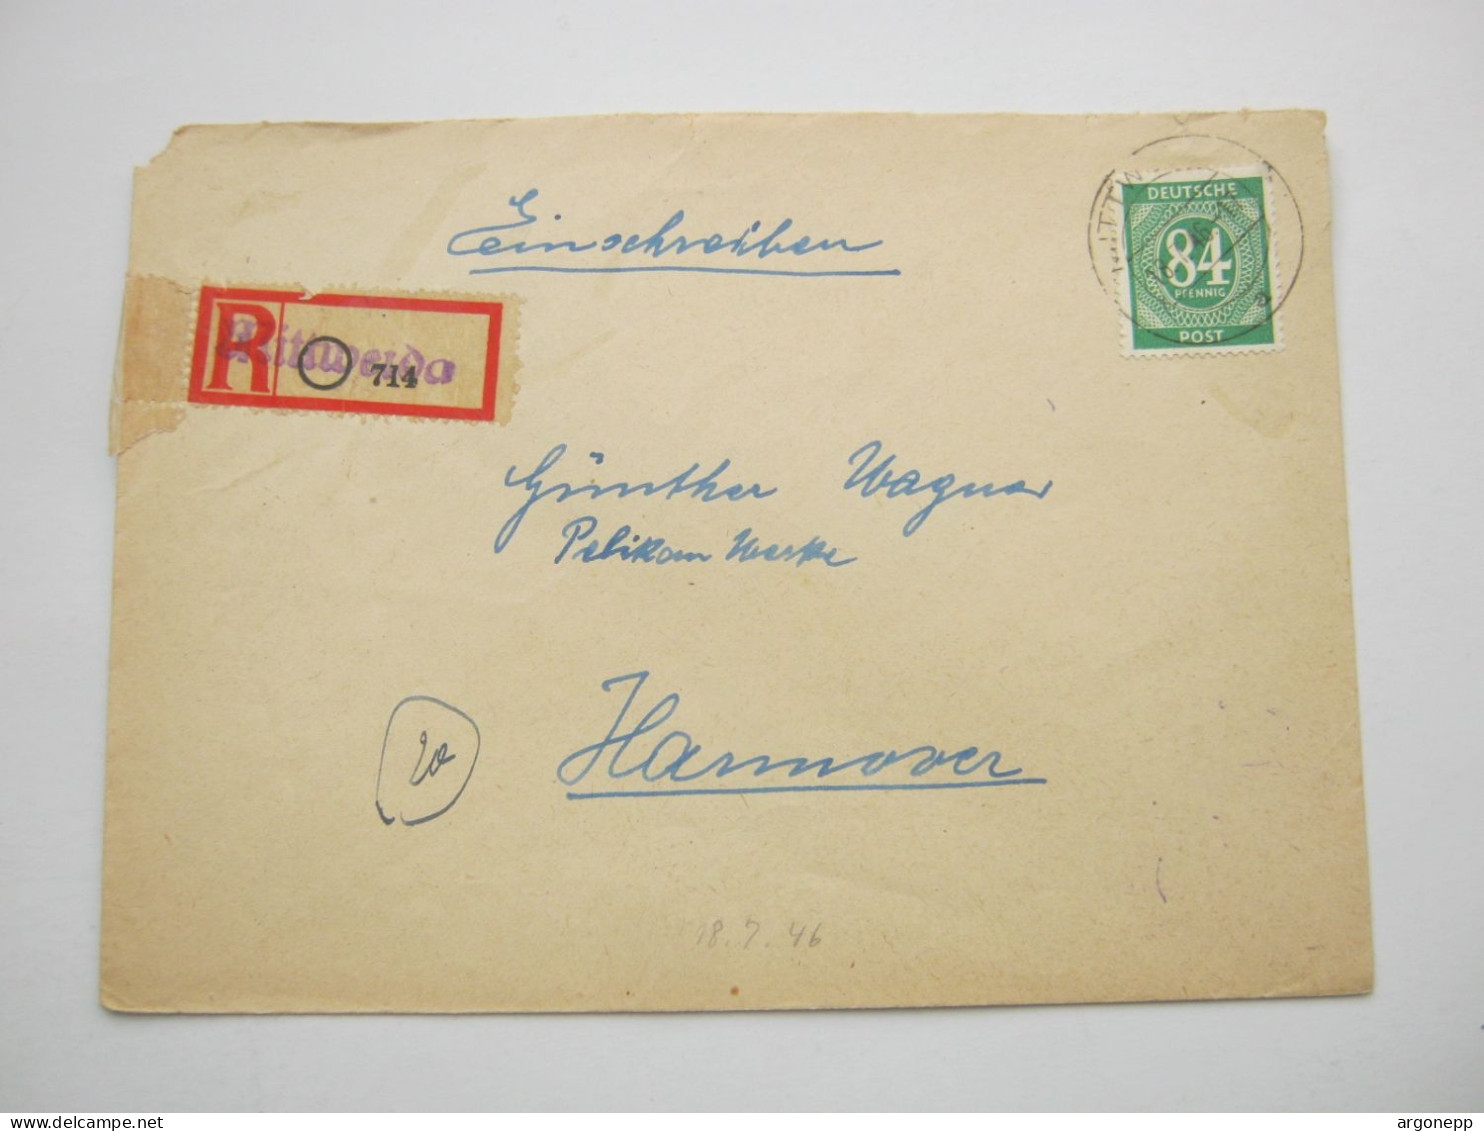 Einschreiben
DEUTSCHE
84
PFENNIG
POST
R Mittweida 714
Günther Wagner
Pelikan Werke
20
Hannover
18.7.46
argonepp